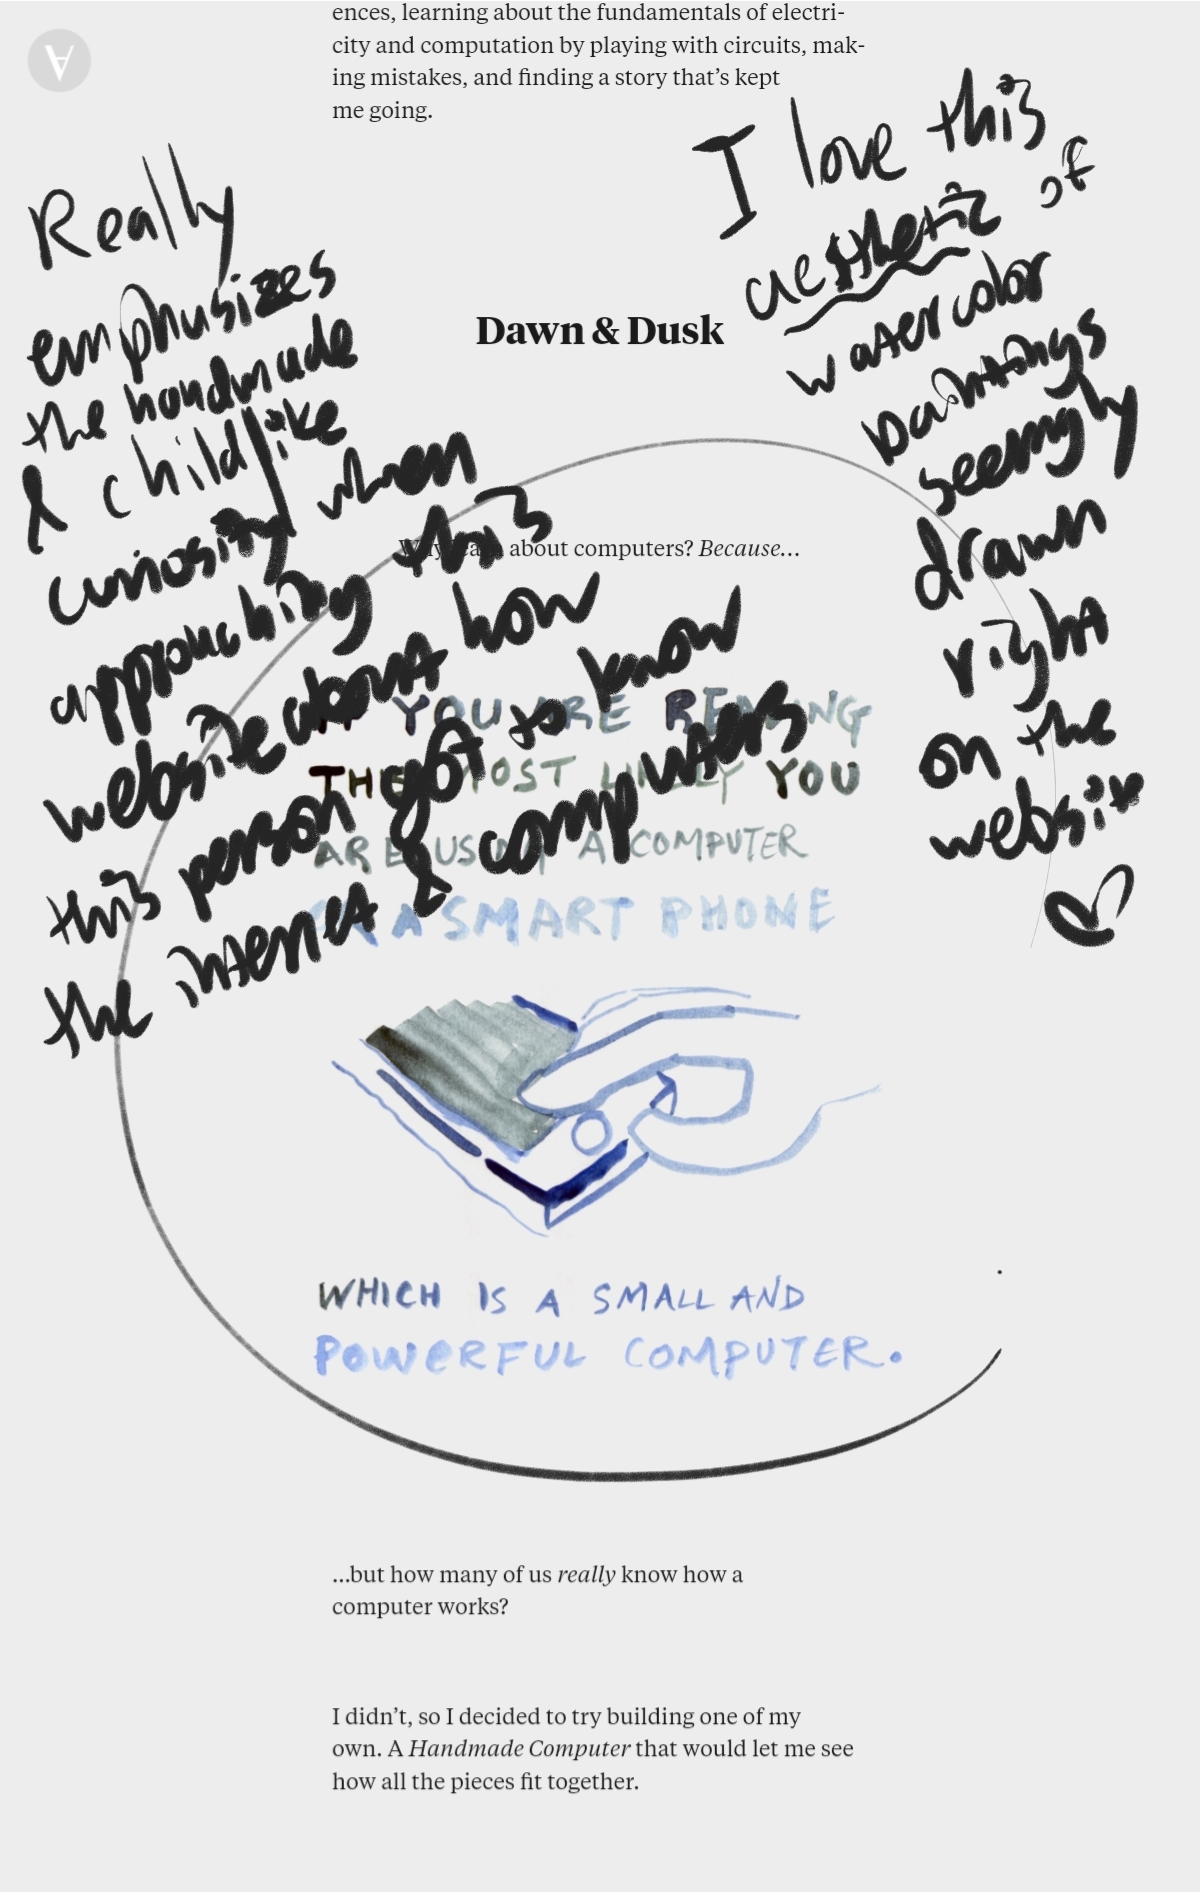 ences, learning about the fundamentals of electri-
city and computation by playing with circuits, mak-
ing mistakes, and finding a story that's kept
me going.
I love this
aesthetic of
watercolor
paintings
seemgly
drawn
right
on the
website
Really
emphasizes
the handmade
& childlike
curiosity when
approaching this
website about how
this person got to know
the internet & computers
Dawn & Dusk
Why learn about computers? Because…
IF YOU ARE READING
THEN MOST LIKELY YOU
ARE USING A COMPUTER
OR A SMART PHONE
WHICH IS A SMALL AND
POWERFUL COMPUTER.
…but how many of us really know how a
computer works?
I didn't, so I decided to try building one of my
own. A Handmade Computer that would let me see
how all the pieces fit together.